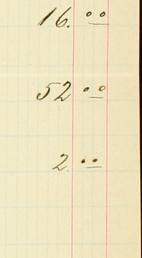 16. 00
52 00
2. 00